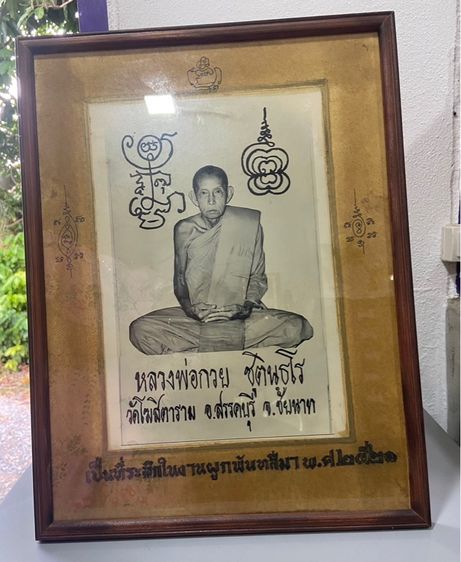 หลวงพ่อกวย ชุตินฺธโร
วัดโฆสิตาราม อ.สรรคบุรี จ.ชัยนาท
เป็นที่ระลึกในงานผูกพันทสีมา พ.ศ.๒๕๒๑